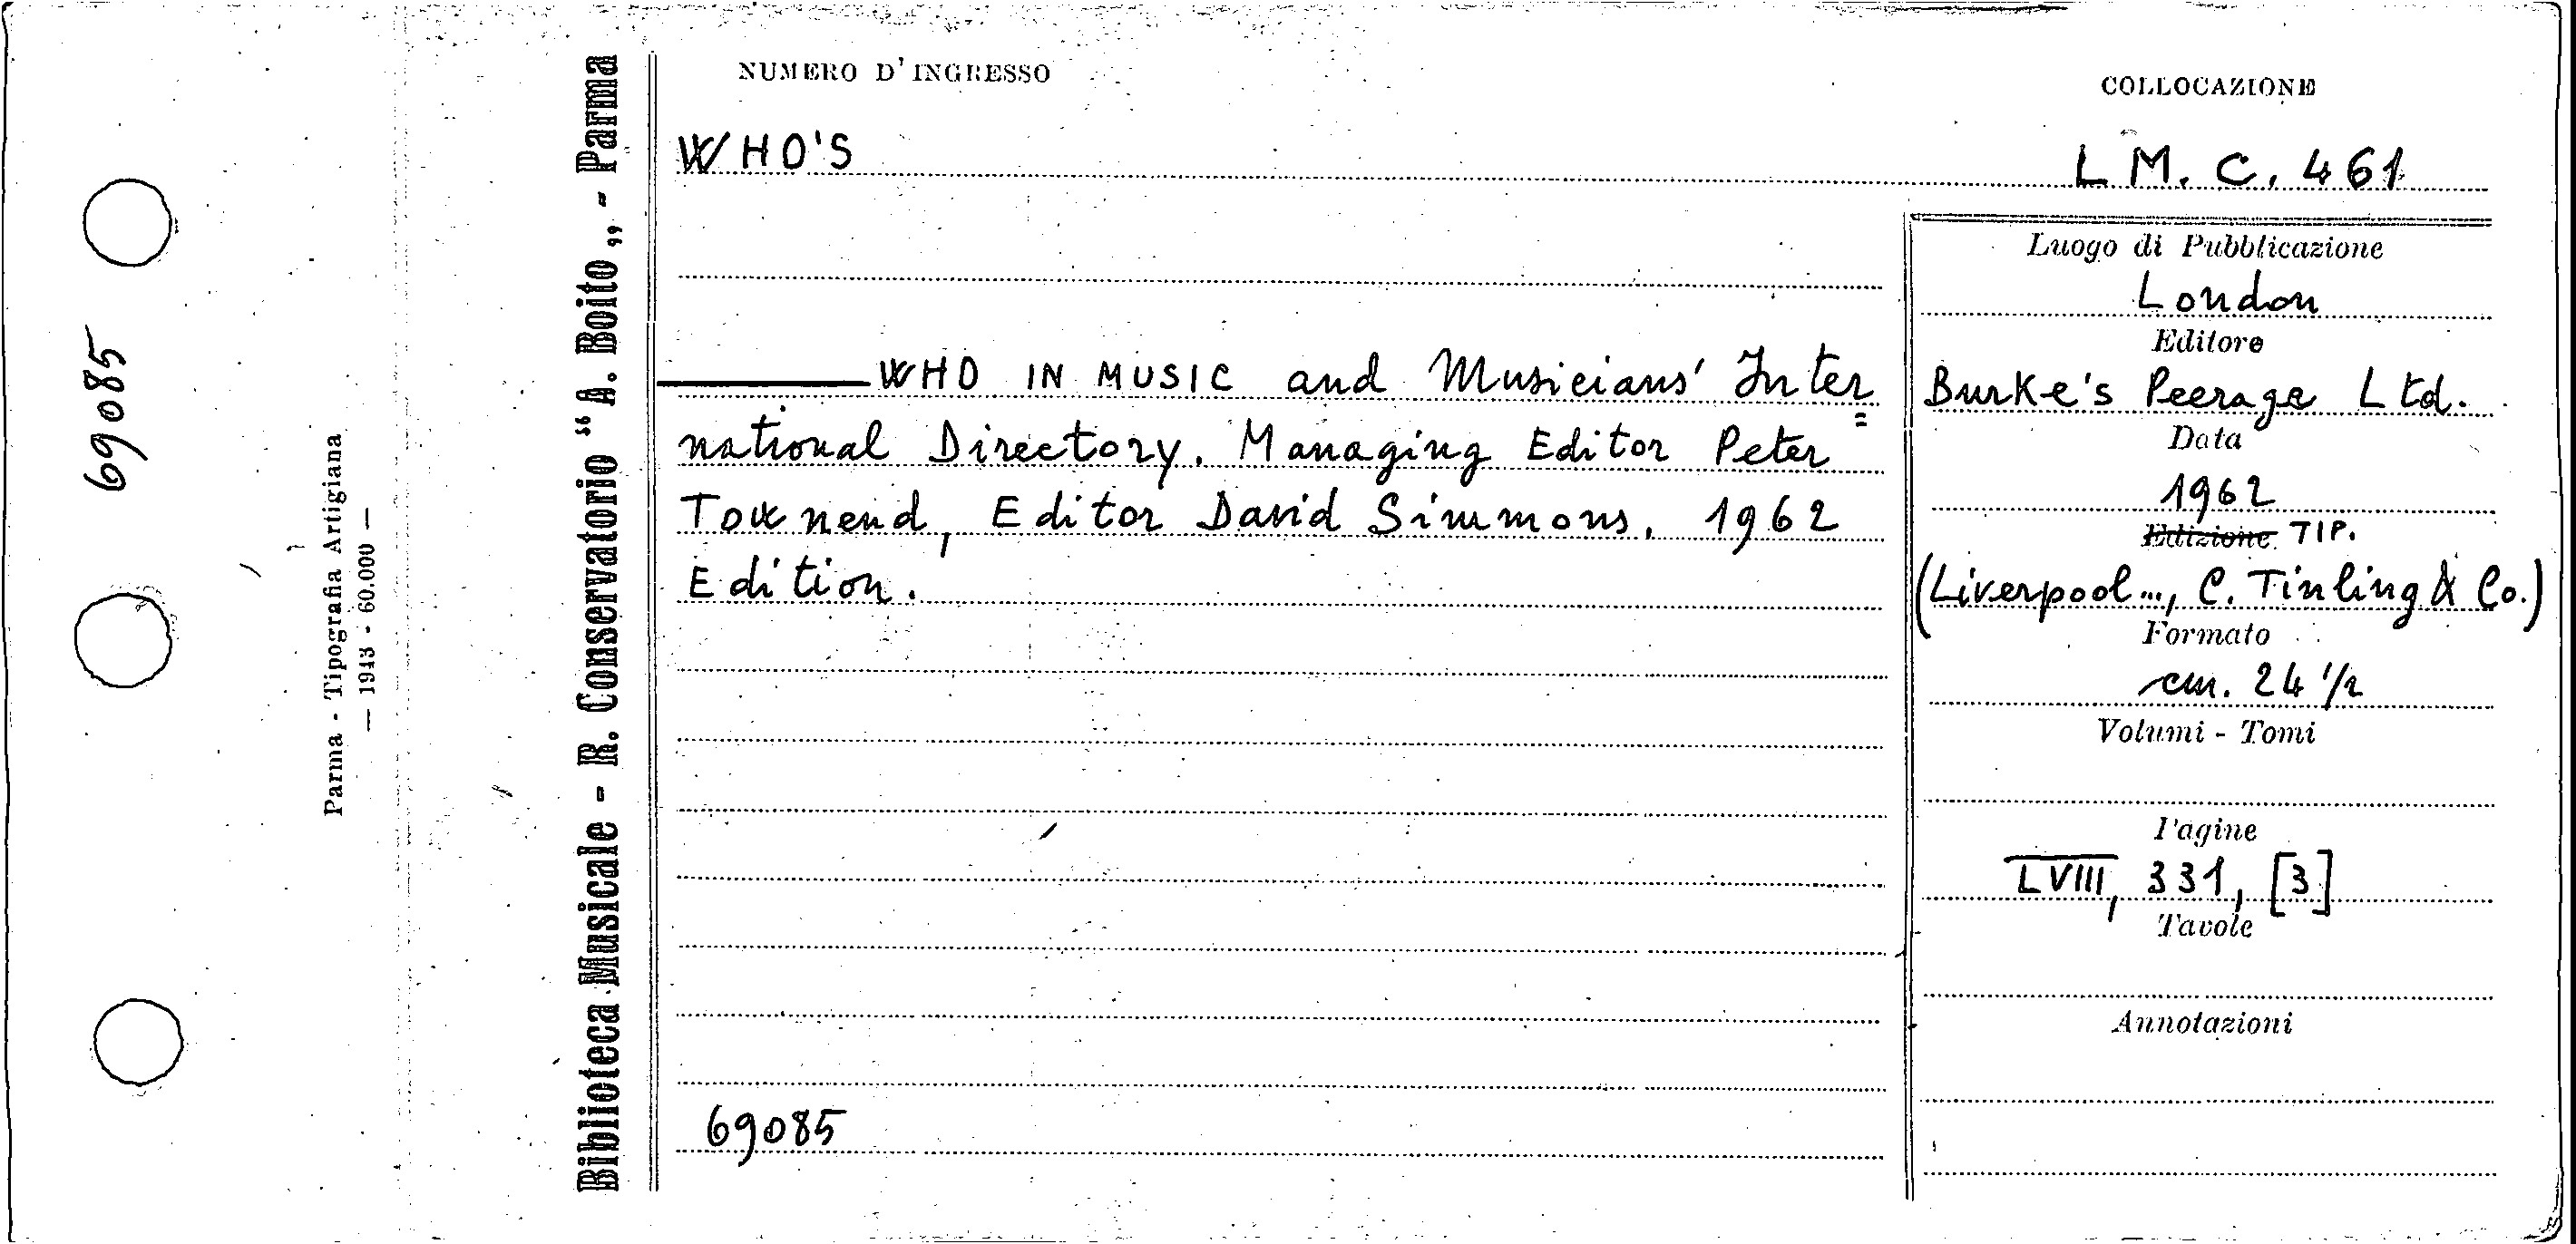 69085
Parma - Tipografia Artigiana
— 1943 - 60.000 —
Biblioteca Musicale - R. Conservatorio “A. Boito„ - Parma
NUMERO D'INGRESSO
COLLOCAZIONE
WHO'S
L M. C. 461
——— WHO IN MUSIC and Musicians' Inter=
national Directory. Managing Editor Peter
Townend, Editor David Simmons. 1962
Edition.
69085
Luogo di Pubblicazione
London
Editore
Burke's Peerage Ltd.
Data
1962
Edizione TIP.
(Liverpool..., C. Tinling & Co.)
Formato
cm. 24 1/2
Volumi - Tomi
Pagine
LVIII, 331, [3]
Tavole
Annotazioni